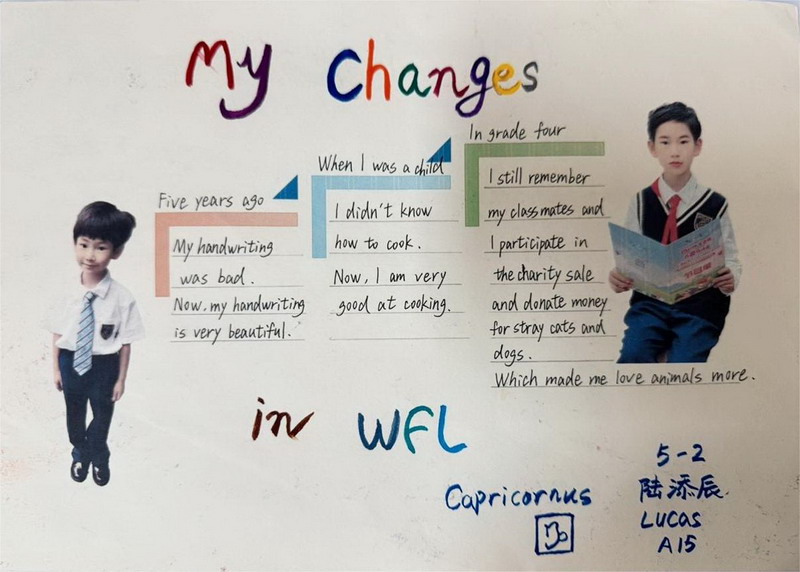 My Changes
Five years ago
My handwriting
was bad.
Now, my handwriting
is very beautiful.
When I was a child
I didn't know
how to cook.
Now, I am very
good at cooking.
In grade four
I still remember
my classmates and
I participate in
the charity sale
and donate money
for stray cats and
dogs.
Which made me love animals more.
in WFL
Capricornus
5-2
陆添辰
LUCAS
A15